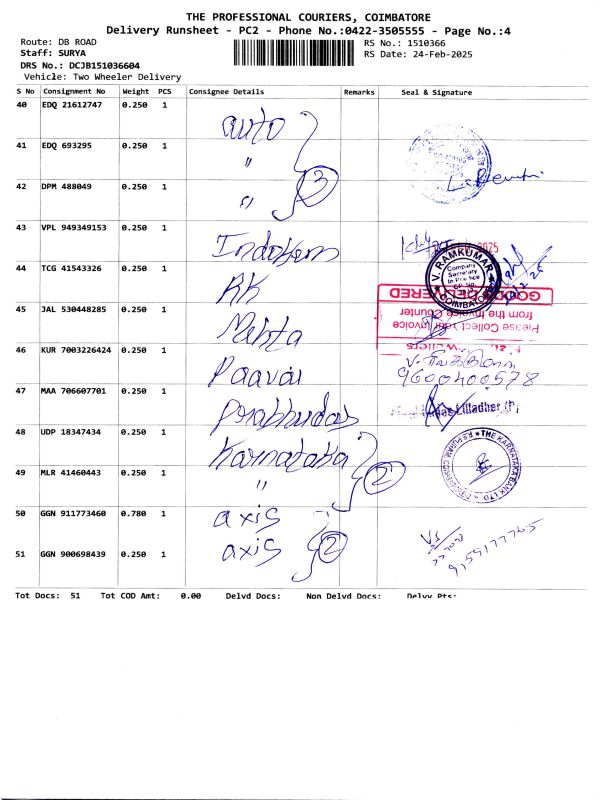 THE PROFESSIONAL COURIERS, COIMBATORE
Delivery Runsheet - PC2 - Phone No.:0422-3505555 - Page No.:4
Route: DB ROAD
RS No.: 1510366
Staff: SURYA
RS Date: 24-Feb-2025
DRS No.: DCJB151036604
Vehicle: Two Wheeler Delivery
S No Consignment No Weight PCS Consignee Details Remarks Seal & Signature
40 EDQ 21612747 0.250 1 auto
41 EDQ 693295 0.250 1 "
42 DPM 488049 0.250 1 " 3
43 VPL 949349153 0.250 1 2025
V. RAMKUMAR
Company
Secretary
In Practice
COIMBATORE
44 TCG 41543326 0.250 1 RK
GOODS DELIVERED
from the Invoice Counter
Please Collect your Invoice
45 JAL 530448285 0.250 1 Mehta
46 KUR 7003226424 0.250 1 Paavai
9600400578
47 MAA 706607701 0.250 1 Prabhudas Lilladher (P)
48 UDP 18347434 0.250 1 Karnataka
THE KARNATAKA BANK LTD.
49 MLR 41460443 0.250 1 " 2
50 GGN 911773460 0.780 1 axis
51 GGN 900698439 0.250 1 axis 2
9159177765
Tot Docs: 51 Tot COD Amt: 0.00 Delvd Docs: Non Delvd Docs: Delvy Pts: